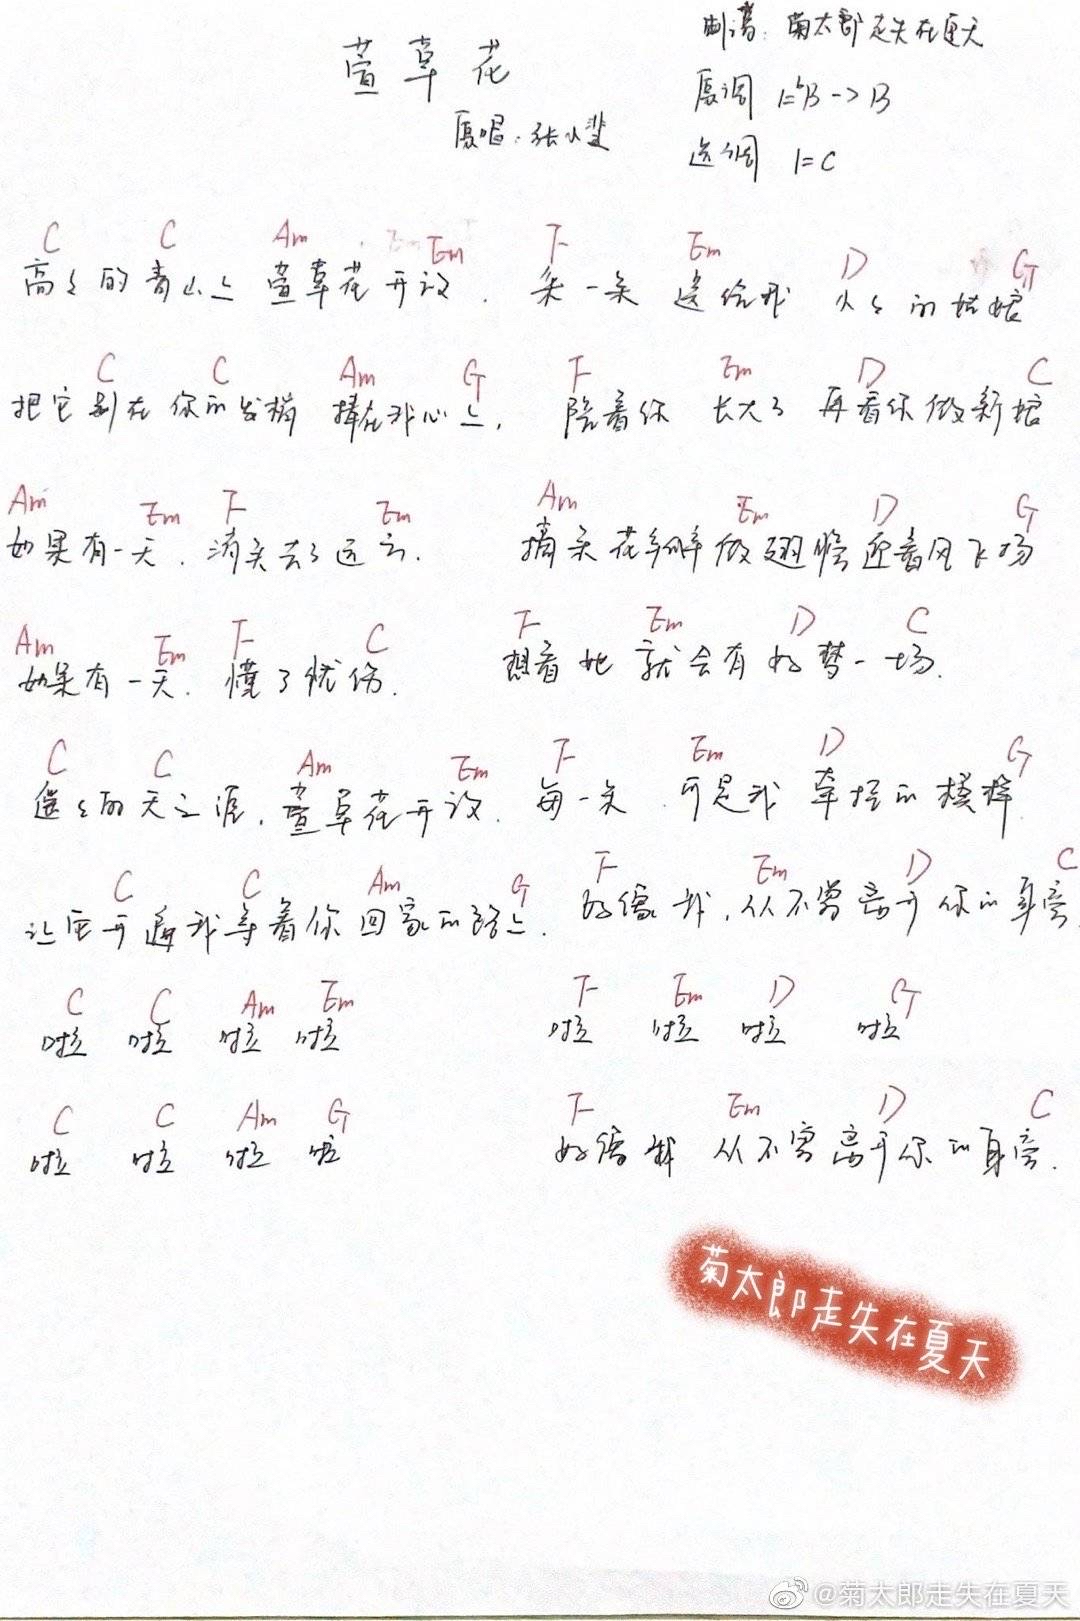 萱草花
制谱：菊太郎走失在夏天
原唱：张小斐
原调 1=♭B->B
选调 1=C
C C Am Em Em F Em D G
高々的青山上 萱草花开放. 采一朵 送给我 小々的姑娘
C C Am G F Em D C
把它别在你的发梢 捧在我心上, 陪着你 长大了 再看你做新娘
Am Em F Em Am Em D G
如果有一天. 消失去了远方. 摘朵花瓣做翅膀迎着风飞扬
Am Em F C F Em D C
如果有一天. 懂了忧伤. 想着她 就会有好梦一场.
C C Am Em F Em D G
遥々的天之涯, 萱草花开放. 每一朵 可是我 牵挂的模样
C C Am G F Em D C
让它开遍我等着你回家的路上. 好像我, 从不曾离开你的身旁.
C C Am Em F Em D G
啦 啦 啦 啦 啦 啦 啦 啦
C C Am G F Em D C
啦 啦 啦 啦 好像我 从不曾离开你的身旁.
菊太郎走失在夏天
@菊太郎走失在夏天